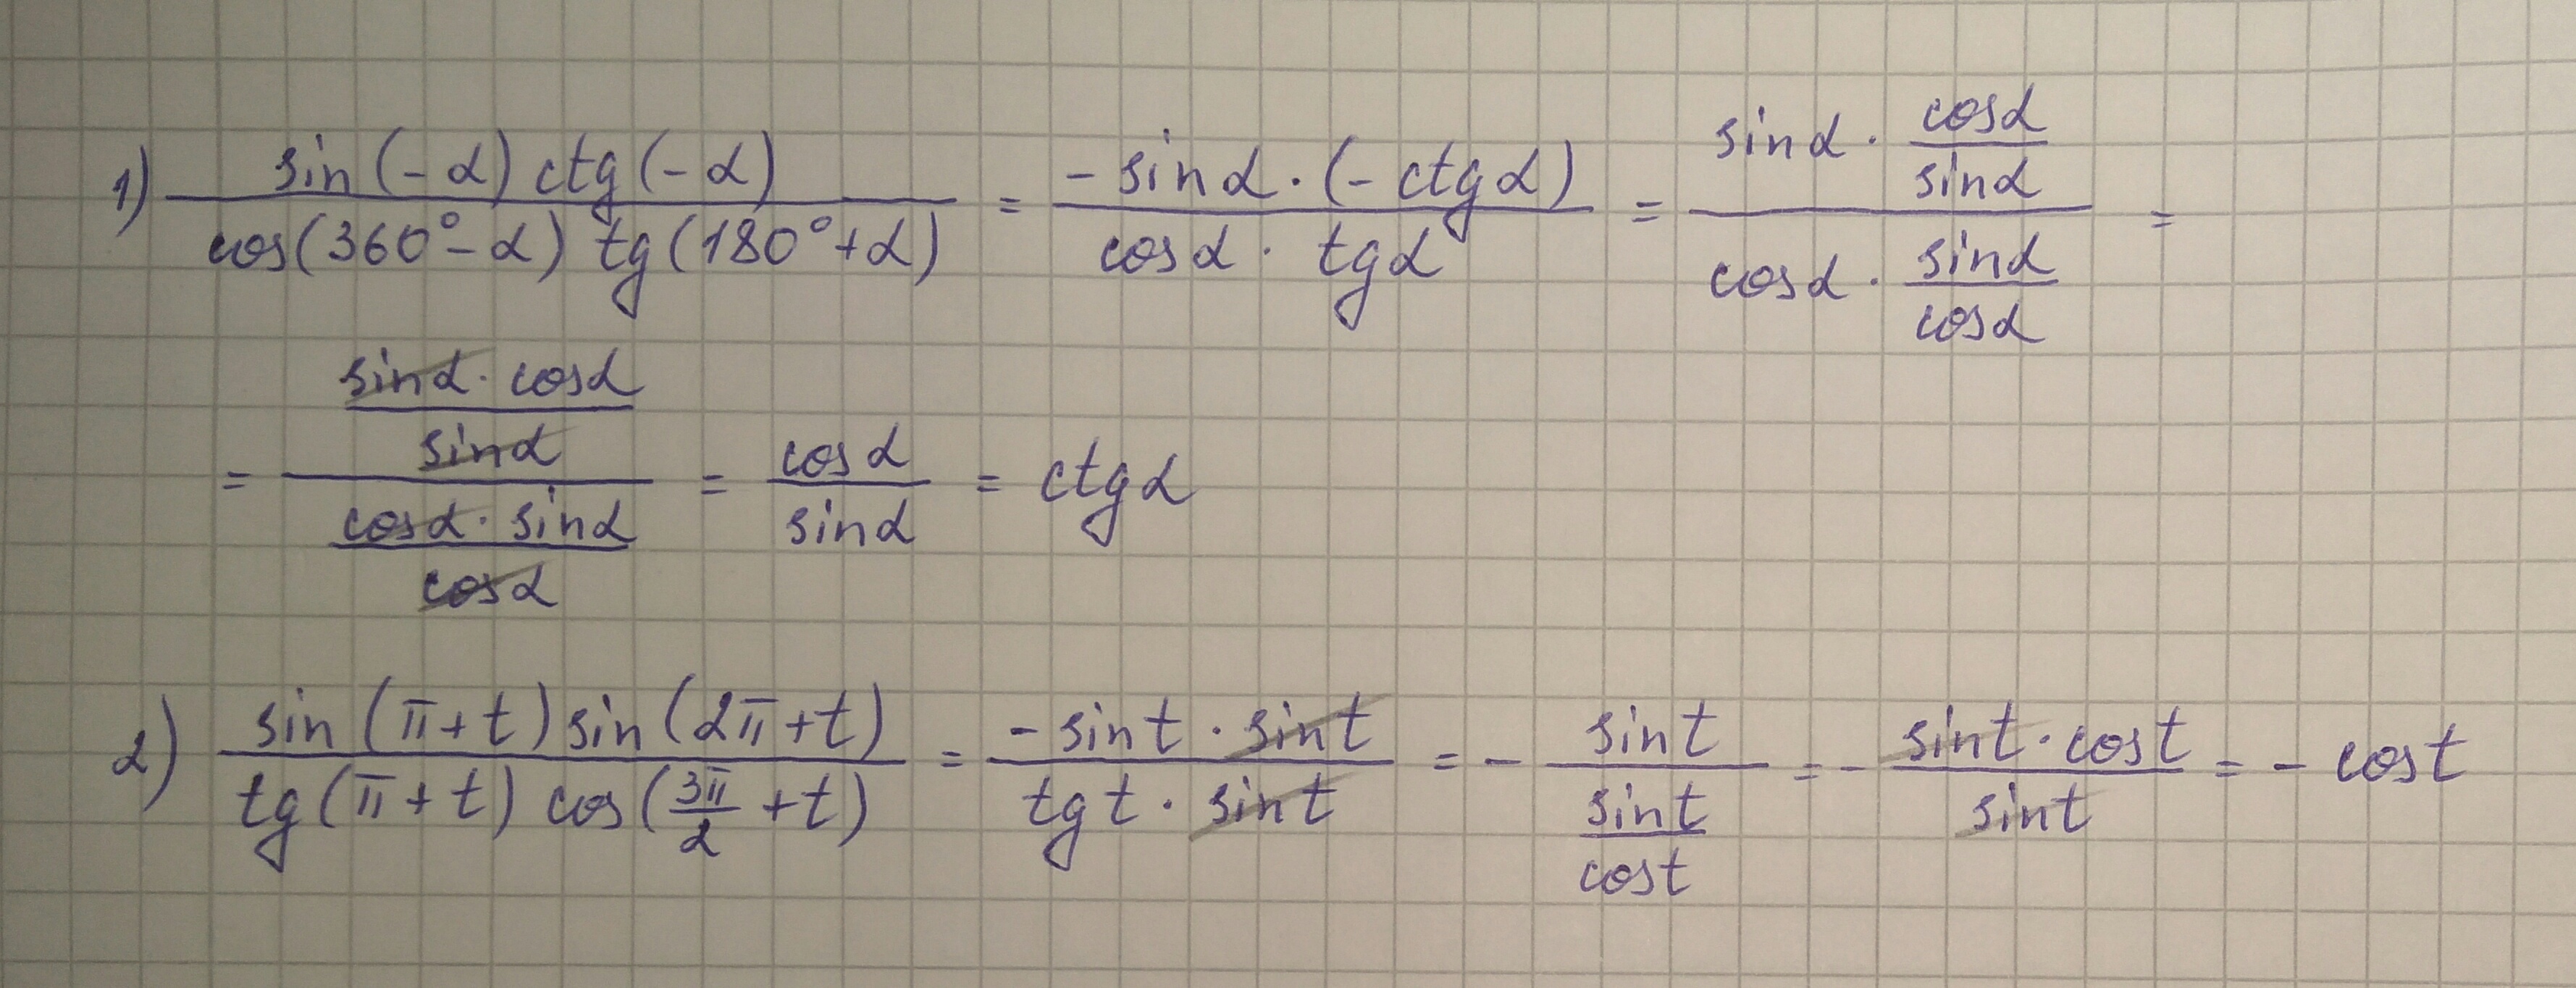 1) \frac{sin(-α) ctg(-α)}{cos(360°-α) tg(180°+α)} = \frac{-sinα · (-ctgα)}{cosα · tgα} = \frac{sinα · \frac{cosα}{sinα}}{cosα · \frac{sinα}{cosα}} =
= \frac{\frac{sinα · cosα}{sinα}}{\frac{cosα · sinα}{cosα}} = \frac{cosα}{sinα} = ctgα
2) \frac{sin(π+t) sin(2π+t)}{tg(π+t) cos(\frac{3π}{2}+t)} = \frac{-sint · sint}{tgt · sint} = -\frac{sint}{\frac{sint}{cost}} = -\frac{sint · cost}{sint} = -cost